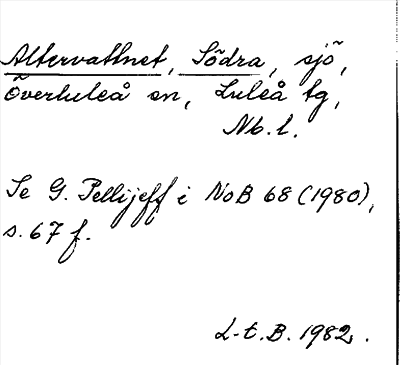 Altervattnet, Södra, sjö,
Överluleå sn, Luleå tg,
Nb. l.
Se G. Pellijeff i NoB 68 (1980),
s. 67 f.
L-t. B. 1982.